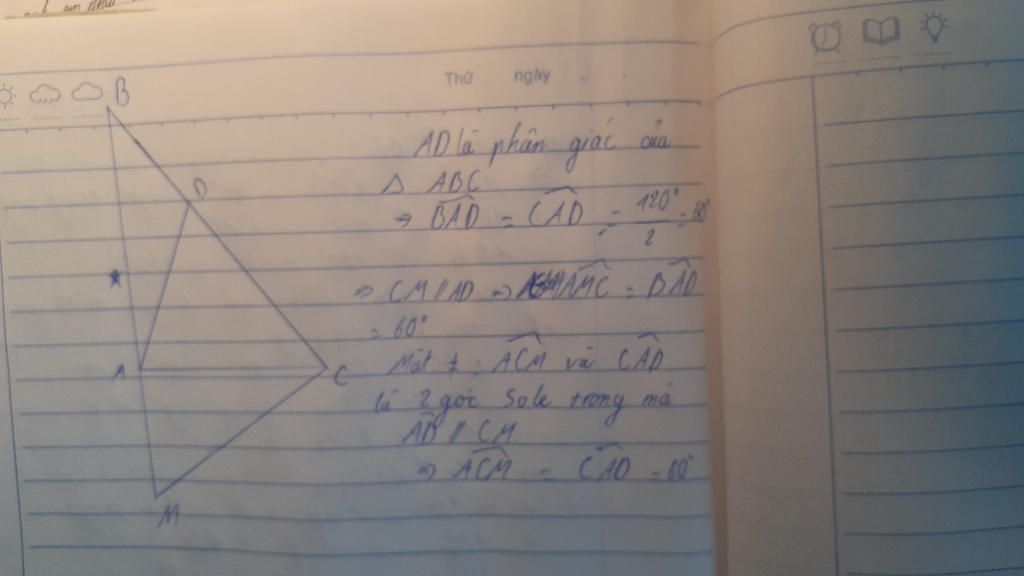 Thứ ngày
B
D
A
C
M
AD là phân giác của
Δ ABC
⇒ BAD̂ = CAD̂ = 120° / 2 = 60°
⇒ CM // AD ⇒ AMĈ = BAD̂
= 60°
Mặt ≠ : ACM̂ và CAD̂
là 2 góc Sole trong mà
AD // CM
⇒ ACM̂ = CAD̂ = 60°